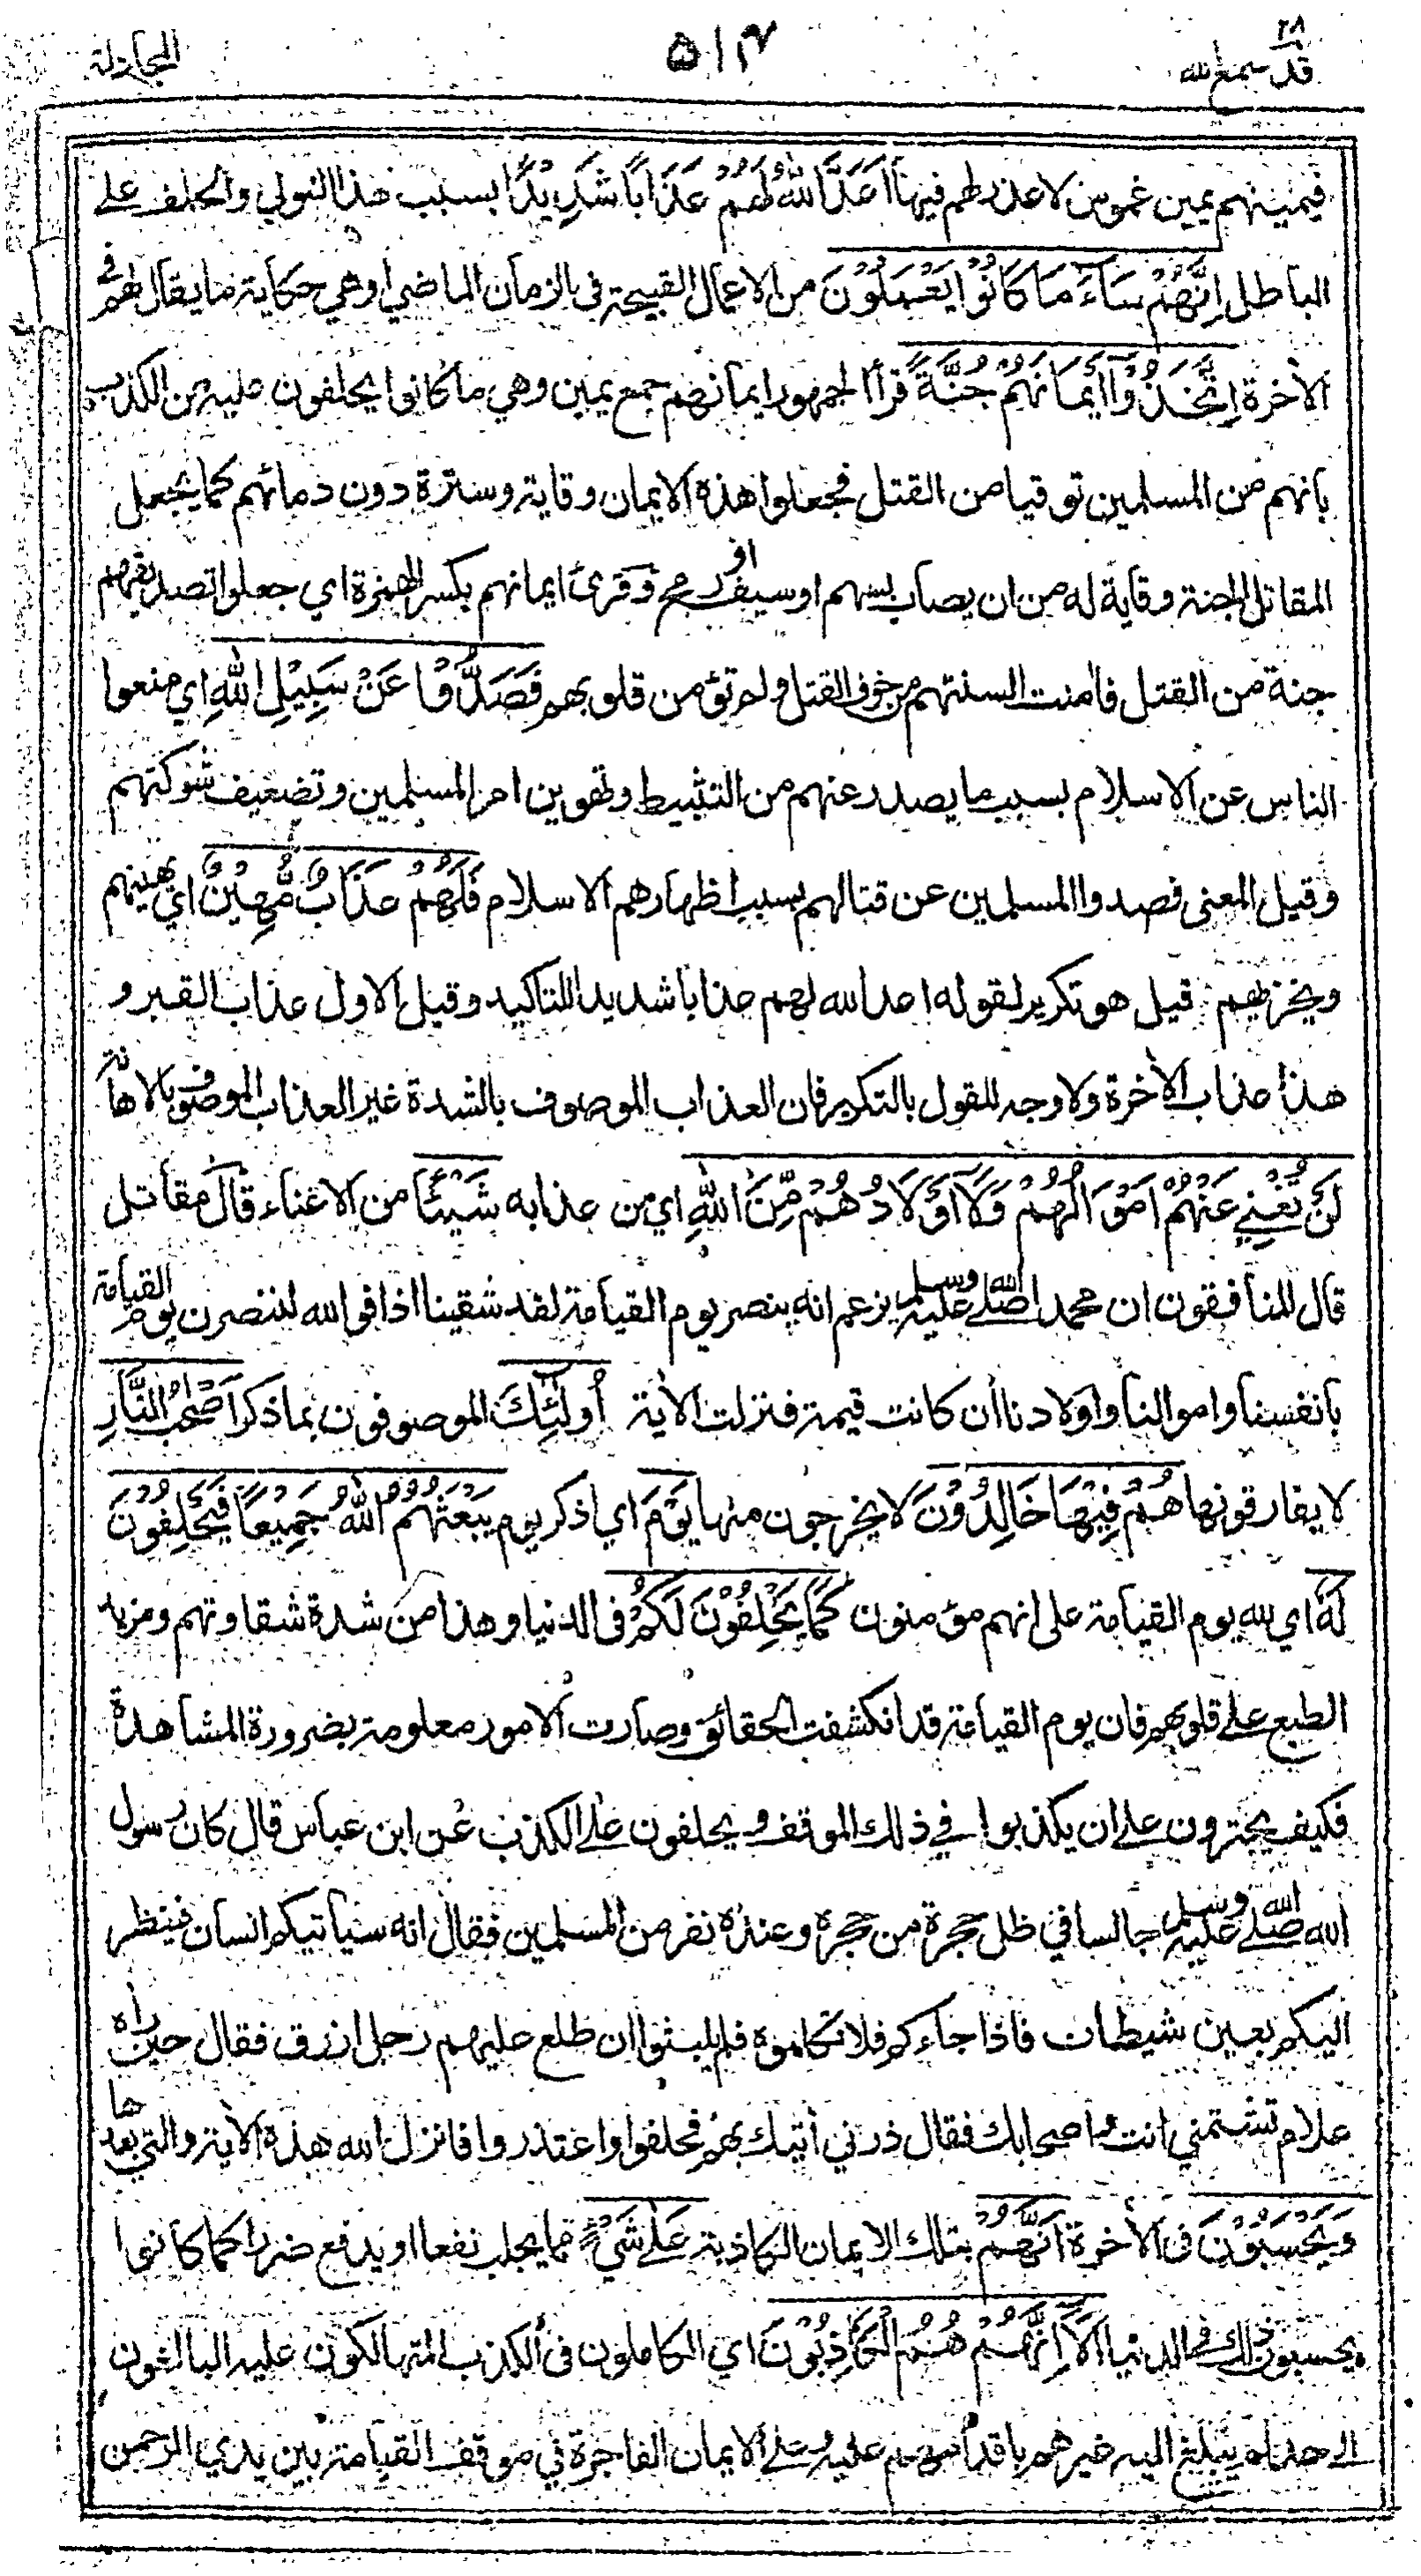 ٢٨
قد سمع الله
٥١٣
المجادلة
فيمينهم يمين غموس لا عذر لهم فيها اَعَدَّ اللّٰهُ لَهُمْ عَذَابًا شَدِيْدًا بسبب هذا التولي والحلف على
الباطل اِنَّهُمْ سَآءَ مَا كَانُوْا يَعْمَلُوْنَ من الاعمال القبيحة في الزمان الماضي او هي حكاية ما يقال لهم في
الآخرة اِتَّخَذُوْٓا اَيْمَانَهُمْ جُنَّةً قرأ الجمهور ايمانهم جمع يمين وهي ما كانوا يحلفون عليه من الكذب
بانهم من المسلمين توقيا من القتل فجعلوا هذه الايمان وقاية وسترة دون دمائهم كما يجعل
المقاتل الجنة وقاية له من ان يصاب بسهم او سيف او رمح وقرئ ايمانهم بكسر الهمزة اي جعلوا تصديقهم
جنة من القتل فامنت السنتهم من خوف القتل ولم تؤمن قلوبهم فَصَدُّوْا عَنْ سَبِيْلِ اللّٰهِ اي منعوا
الناس عن الاسلام بسبب ما يصدر عنهم من التثبيط وتهوين امر المسلمين وتضعيف شوكتهم
وقيل المعنى فصدوا المسلمين عن قتالهم بسبب اظهارهم الاسلام فَلَهُمْ عَذَابٌ مُّهِيْنٌ اي يهينهم
ويخزيهم قيل هو تكرير لقوله اعد الله لهم عذابا شديدا للتاكيد وقيل الاول عذاب القبر و
هذا عذاب الآخرة ولا وجه للقول بالتكرير فان العذاب الموصوف بالشدة غير العذاب الموصوف بالاهانة
لَنْ تُغْنِيَ عَنْهُمْ اَمْوَالُهُمْ وَلَآ اَوْلَادُهُمْ مِّنَ اللّٰهِ اي من عذابه شَيْئًا من الاغناء قال مقاتل
قال المنافقون ان محمدا صلى الله عليه وسلم يزعم انه ينصر يوم القيامة لقد شقينا اذا فوالله لننصرن يوم القيامة
بانفسنا واموالنا واولادنا ان كانت قيمة فنزلت الآية اُولٰٓئِكَ الموصوفون بما ذكر اَصْحٰبُ النَّارِ
لا يفارقونها هُمْ فِيْهَا خَالِدُوْنَ لا يخرجون منها يَوْمَ اي اذكر يوم يَبْعَثُهُمُ اللّٰهُ جَمِيْعًا فَيَحْلِفُوْنَ
لَهٗ اي لله يوم القيامة على انهم مؤمنون كَمَا يَحْلِفُوْنَ لَكُمْ في الدنيا وهذا من شدة شقاوتهم ومزيد
الطبع على قلوبهم فان يوم القيامة قد انكشفت الحقائق وصارت الامور معلومة بضرورة المشاهدة
فكيف يجترون على ان يكذبوا في ذلك الموقف ويحلفون على الكذب عن ابن عباس قال كان رسول
الله صلى الله عليه وسلم جالسا في ظل حجرة من حجره وعنده نفر من المسلمين فقال انه سياتيكم انسان فينظر
اليكم بعين شيطان فاذا جاءكم فلا تكلموه فلم يلبثوا ان طلع عليهم رجل ازرق فقال حين رآه
علام تشتمني انت واصحابك فقال ذرني آتيك بهم فحلفوا واعتذروا فانزل الله هذه الآية والتي بعدها
وَيَحْسَبُوْنَ في الآخرة اَنَّهُمْ بتلك الايمان الكاذبة عَلٰى شَيْءٍ مما يجلب نفعا او يدفع ضررا كما كانوا
يحسبون ذلك في الدنيا اَلَآ اِنَّهُمْ هُمُ الْكَاذِبُوْنَ اي الكاملون في الكذب المتهالكون عليه البالغون
الى حد لم يبلغ اليه غيرهم باقدامهم عليه وعلى الايمان الفاجرة في موقف القيامة بين يدي الرحمن